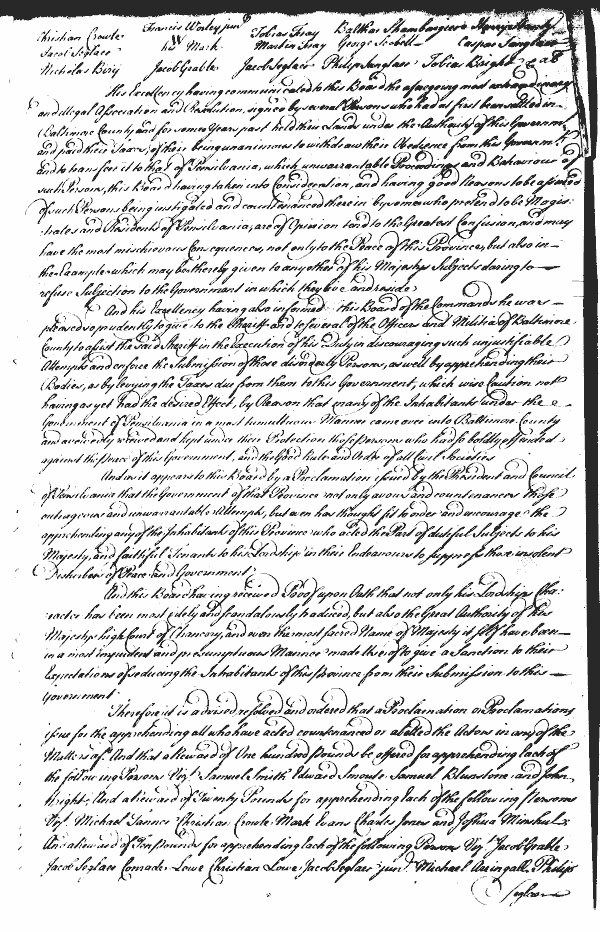 Christian Crowle Francis Worley junr Tobias Fray Balthar Shambargier Henry
Jacob Seglaer his W Mark Martin Fray George Scobell Caspar Sanglaer
Nicholas Biry Jacob Grable Jacob Seglaer Philip Sanglaer Tobias Bright
His Excellency having communicated to this Board the aforegoing most extraordinary
and illegal Association and Resolution, signed by several Persons who had at first been settled in
Baltimore County and for some Years past held their Lands under the Authority of this Governmt
and paid their Taxes, of their being unanimous to withdraw their Obedience from this Governmt
and to transfer it to that of Pensilvania, which unwarrantable Proceedings and Behaviour of
such Persons, this Board having taken into Consideration, and having good Reasons to be assured
of such Persons being instigated and countenanced therein by some who pretend to be Magis
trates and Residents of Pensilvania, are of Opinion tend to the Greatest Confusion, and may
have the most mischievous Consequences, not only to the Peace of this Province, but also in
the Example which may be thereby given to any other of his Majestys Subjects daring to
refuse Subjection to the Government in which they live and reside
And his Excellency having also informed this Board of the Commands he was
pleased so prudently to give to the Sheriff and to several of the Officers and Militia of Baltimore
County to assist the said Sheriff in the Execution of his Duty in discouraging such unjustifiable
Attempts and enforce the Submission of those disorderly Persons, as well by apprehending their
Bodies, as by levying the Taxes due from them to this Government, which wise Caution not
having as yet had the desired Effect, by Reason that many of the Inhabitants under the
Government of Pensilvania in a most tumultuous Manner came over into Baltimore County
and avowedly received and kept under their Protection those Persons who had so boldly offended
against the Peace of this Government, and the Good Rule and Order of all Civil Societies
And as it appears to this Board by a Proclamation issued by the President and Council
of Pensilvania that the Government of that Province not only avows and countenances those
outrageous and unwarrantable Attempts, but even has thought fit to order and encourage the
apprehending any of the Inhabitants of this Province who acted the Part of dutiful Subjects to his
Majesty, and faithful Tenants to his Lordship in their Endeavours to suppress these insolent
Disturbers of Peace and Government
And this Board having received Proof upon Oath that not only his Lordships Cha:
racter has been most falsely and scandalously traduced, but also the Great Authority of the
Majestys high Court of Chancery, and even the most sacred Name of Majesty it self have been
in a most impudent and presumptuous Manner made use of to give a Sanction to their
Expectations of seducing the Inhabitants of this Province from their Submission to this
Government
Therefore it is advised resolved and ordered that a Proclamation or Proclamations
issue for the apprehending all who have acted countenanced or abetted the Actors in any of the
Matters afd. And that a Reward of One hundred Pounds be offered for apprehending each of
the following Persons Vizt. Samuel Smith Edward Smout Samuel Blunstone and John
Wright. And a reward of Twenty Pounds for apprehending Each of the following Persons
Vizt. Michael Tanner Christian Crowle Mark Evans Charles Jones and Joshua Minshiel
And a reward of Ten Pounds for apprehending Each of the following Persons Vizt Jacob Grable
Jacob Seglaer Conrade Lowe Christian Lowe Jacob Seglaer junr. Michael Aringall Philip
Seglaer